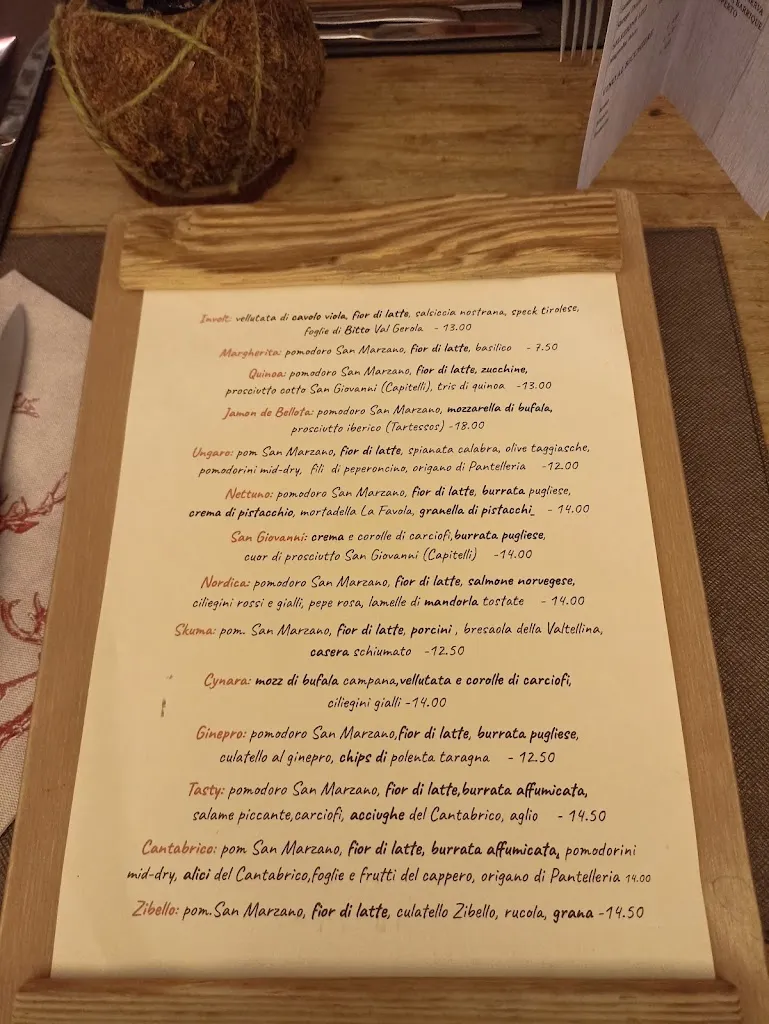 Involt: vellutata di cavolo viola, fior di latte, salsiccia nostrana, speck tirolese,
foglie di Bitto Val Gerola - 13.00
Margherita: pomodoro San Marzano, fior di latte, basilico - 7.50
Quinoa: pomodoro San Marzano, fior di latte, zucchine,
prosciutto cotto San Giovanni (Capitelli), tris di quinoa -13.00
Jamon de Bellota: pomodoro San Marzano, mozzarella di bufala,
prosciutto iberico (Tartessos) -18.00
Ungaro: pom San Marzano, fior di latte, spianata calabra, olive taggiasche,
pomodorini mid-dry, fili di peperoncino, origano di Pantelleria -12.00
Nettuno: pomodoro San Marzano, fior di latte, burrata pugliese,
crema di pistacchio, mortadella La Favola, granella di pistacchi_ - 14.00
San Giovanni: crema e corolle di carciofi,burrata pugliese,
cuor di prosciutto San Giovanni (Capitelli) -14.00
Nordica: pomodoro San Marzano, fior di latte, salmone norvegese,
ciliegini rossi e gialli, pepe rosa, lamelle di mandorla tostate - 14.00
Skuma: pom. San Marzano, fior di latte, porcini , bresaola della Valtellina,
casera schiumato -12.50
Cynara: mozz di bufala campana,vellutata e corolle di carciofi,
ciliegini gialli -14.00
Ginepro: pomodoro San Marzano,fior di latte, burrata pugliese,
culatello al ginepro, chips di polenta taragna - 12.50
Tasty: pomodoro San Marzano, fior di latte,burrata affumicata,
salame piccante,carciofi, acciughe del Cantabrico, aglio - 14.50
Cantabrico: pom San Marzano, fior di latte, burrata affumicata, pomodorini
mid-dry, alici del Cantabrico,foglie e frutti del cappero, origano di Pantelleria 14.00
Zibello: pom.San Marzano, fior di latte, culatello Zibello, rucola, grana -14.50